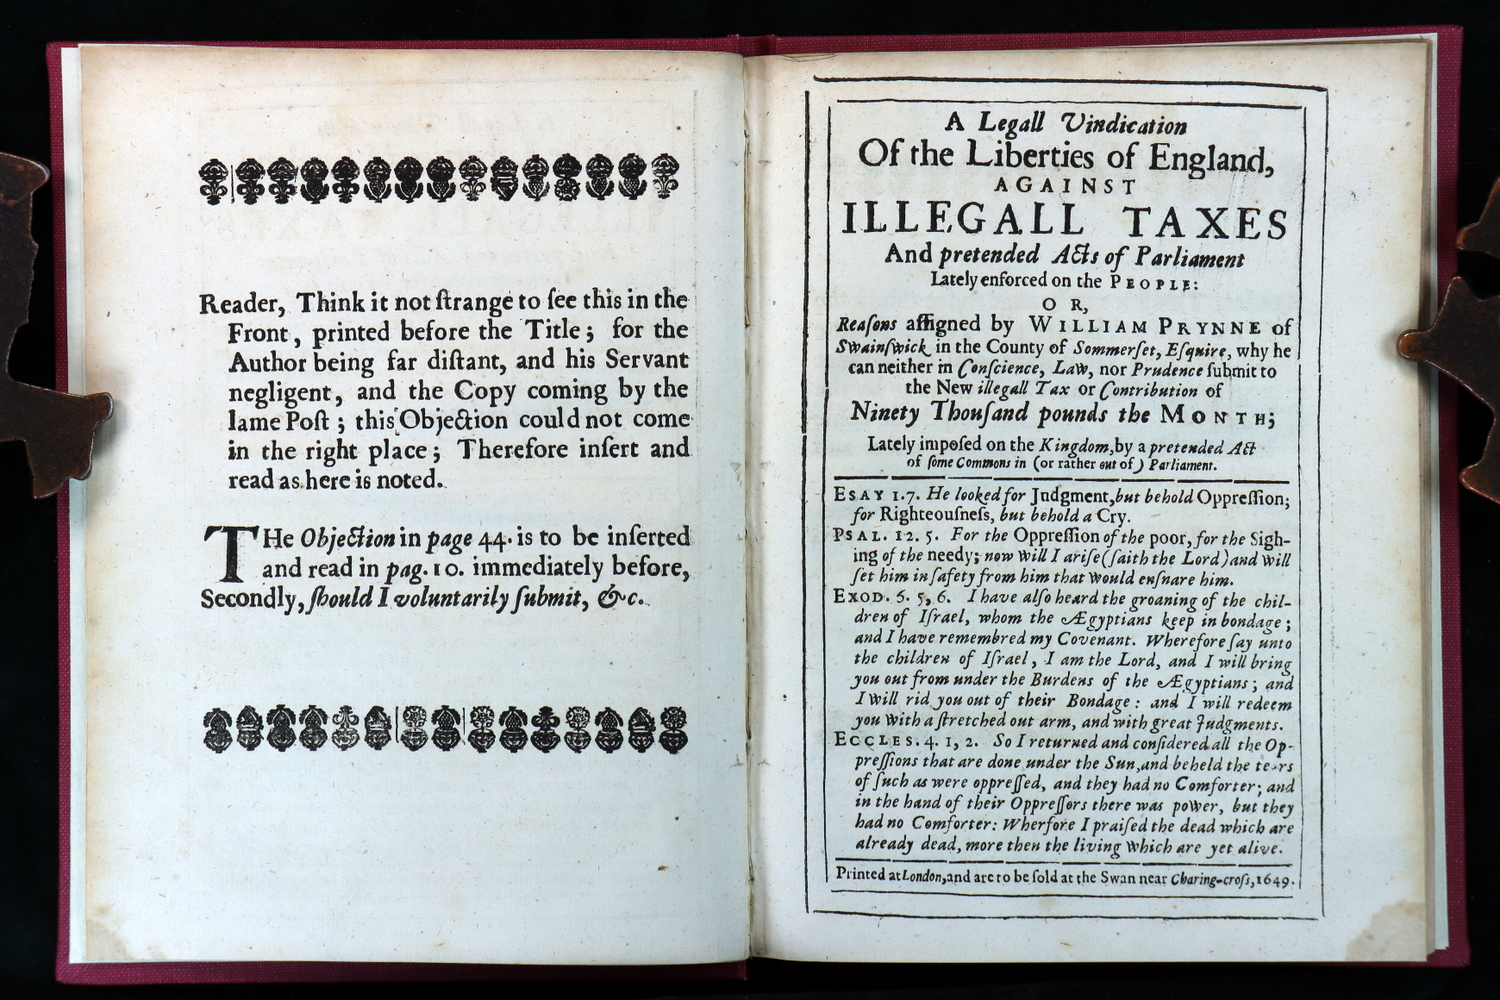 Reader, Think it not ſtrange to ſee this in the
Front, printed before the Title; for the
Author being far diſtant, and his Servant
negligent, and the Copy coming by the
lame Poſt; this Objection could not come
in the right place; Therefore inſert and
read as here is noted.
THe Objection in page 44. is to be inſerted
and read in pag. 10. immediately before,
Secondly, ſhould I voluntarily ſubmit, &c.
A Legall Vindication
Of the Liberties of England,
AGAINST
ILLEGALL TAXES
And pretended Acts of Parliament
Lately enforced on the PEOPLE:
OR,
Reaſons aſſigned by WILLIAM PRYNNE of
Swainſwick in the County of Sommerſet, Eſquire, why he
can neither in Conſcience, Law, nor Prudence ſubmit to
the New illegall Tax or Contribution of
Ninety Thouſand pounds the MONTH;
Lately impoſed on the Kingdom, by a pretended Act
of ſome Commons in (or rather out of) Parliament.
ESAY 1.7. He looked for Judgment, but behold Oppreſſion;
for Righteouſneſs, but behold a Cry.
PSAL. 12. 5. For the Oppreſſion of the poor, for the Sigh-
ing of the needy; now will I ariſe (ſaith the Lord) and will
ſet him in ſafety from him that would enſnare him.
EXOD. 6. 5, 6. I have alſo heard the groaning of the chil-
dren of Iſrael, whom the Ægyptians keep in bondage;
and I have remembred my Covenant. Wherefore ſay unto
the children of Iſrael, I am the Lord, and I will bring
you out from under the Burdens of the Ægyptians; and
I will rid you out of their Bondage: and I will redeem
you with a ſtretched out arm, and with great Judgments.
ECCLES. 4. 1, 2. So I returned and conſidered all the Op-
preſſions that are done under the Sun, and beheld the tears
of ſuch as were oppreſſed, and they had no Comforter; and
in the hand of their Oppreſſors there was power, but they
had no Comforter: Wherfore I praiſed the dead which are
already dead, more then the living which are yet alive.
Printed at London, and are to be ſold at the Swan near Charing-croſs, 1649.